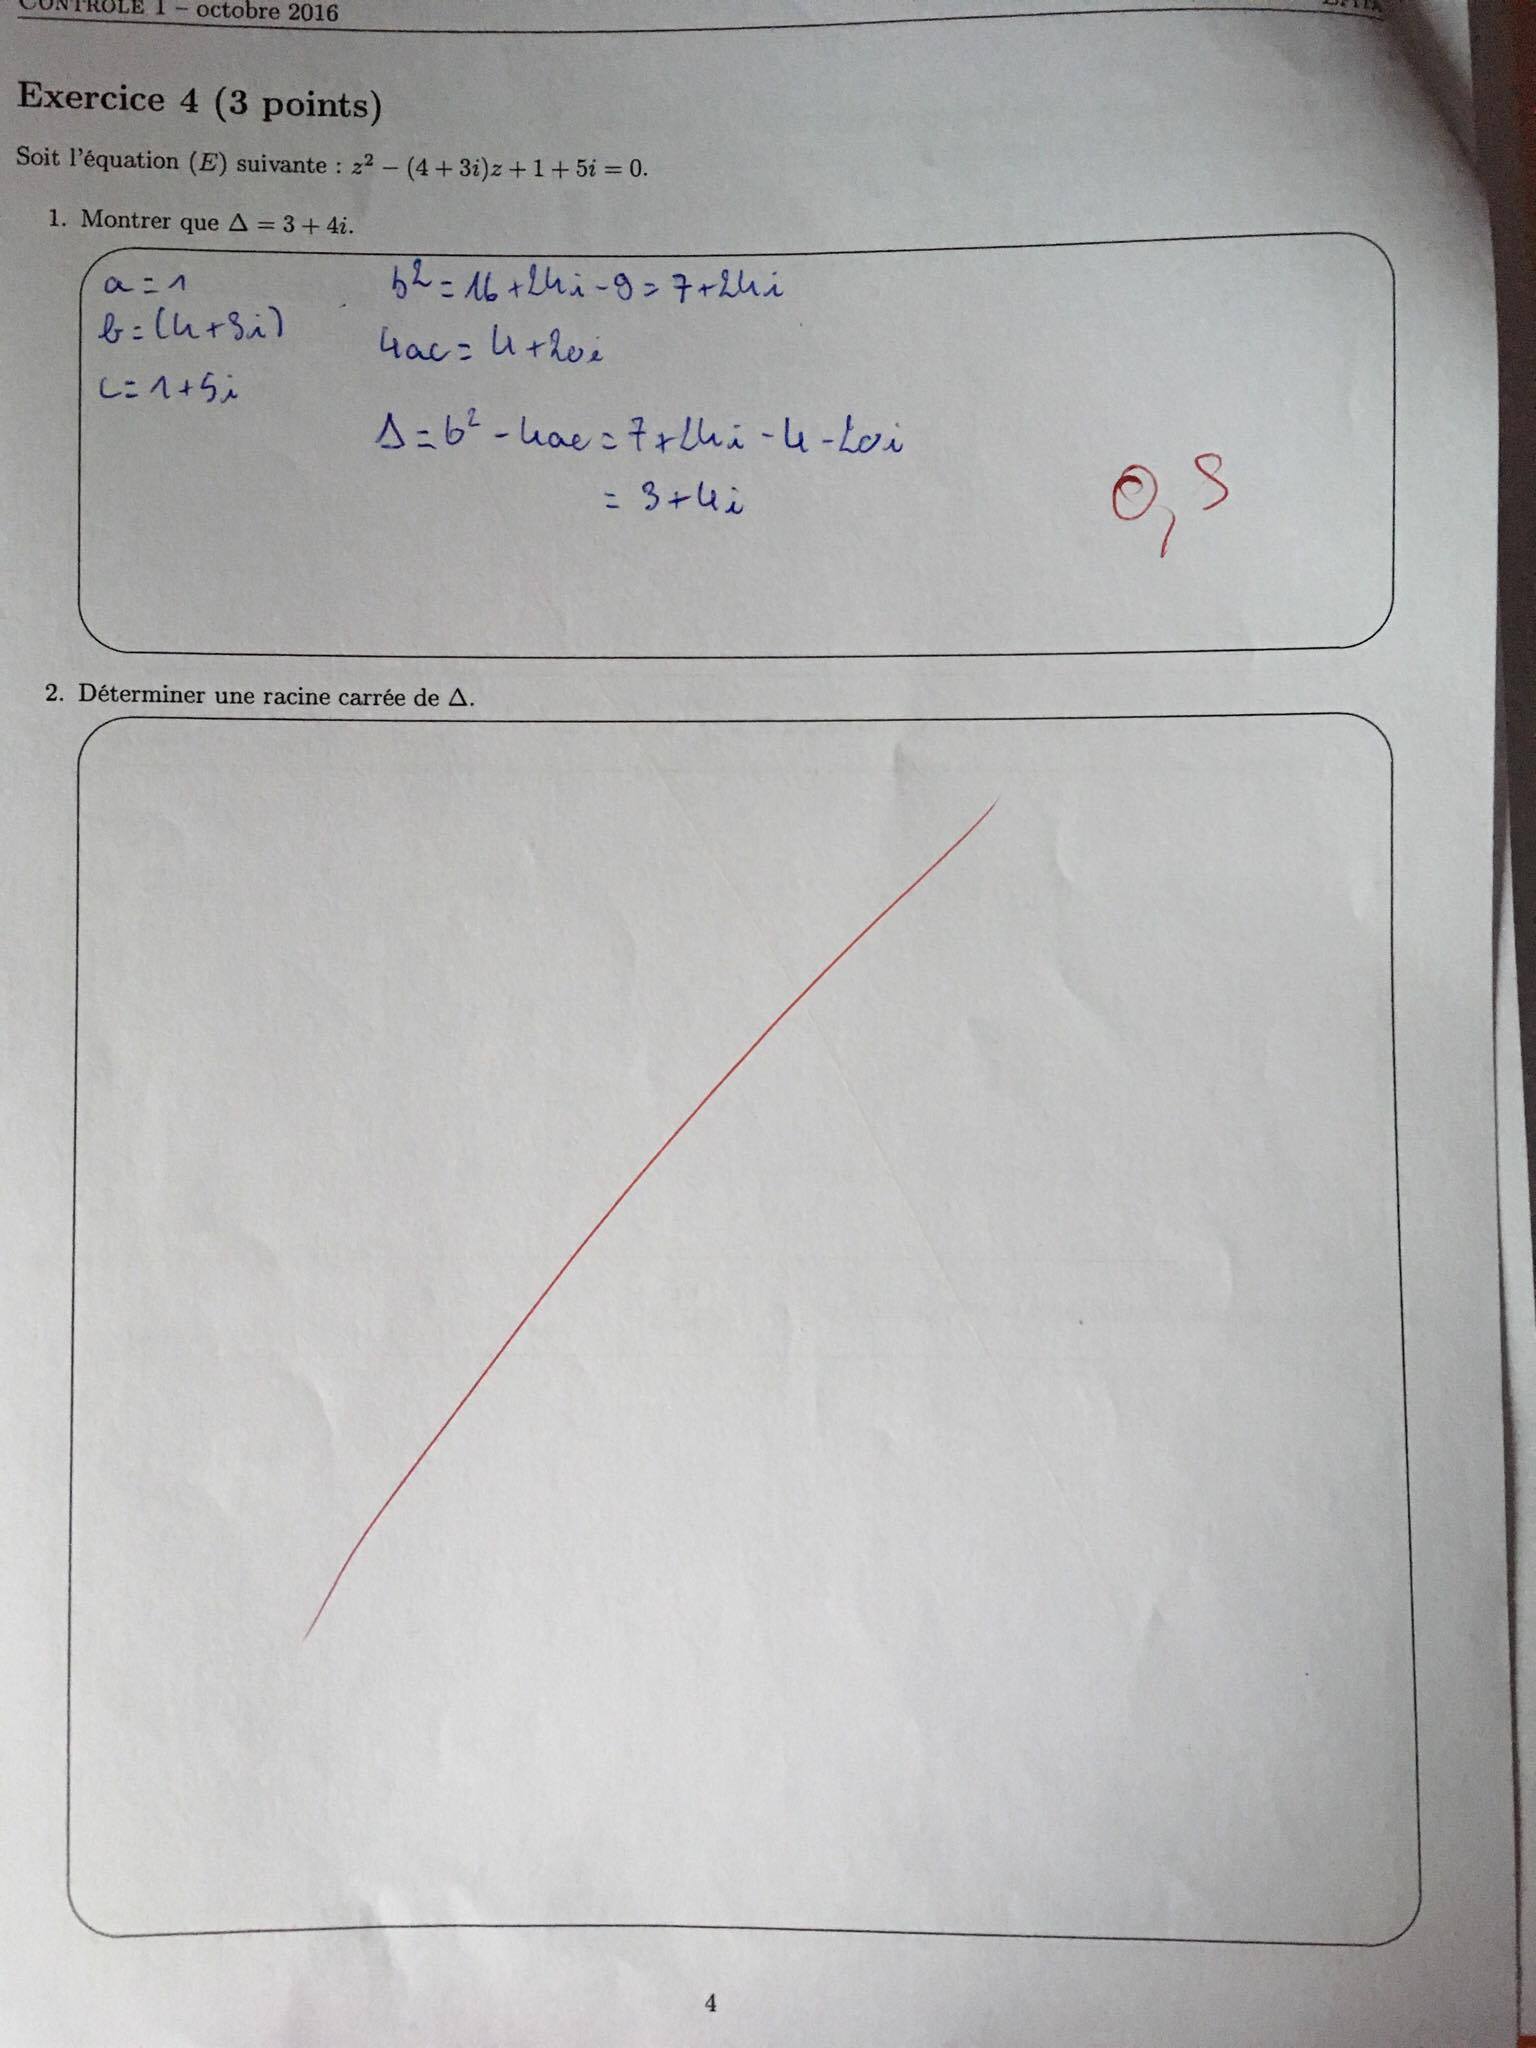 CONTRÔLE 1 – octobre 2016
EPITA
Exercice 4 (3 points)
Soit l'équation (E) suivante : z² − (4 + 3i)z + 1 + 5i = 0.
1. Montrer que Δ = 3 + 4i.
a = 1
b = (4+3i)
c = 1+5i
b² = 16 + 24i - 9 = 7 + 24i
4ac = 4 + 20i
Δ = b² - 4ac = 7 + 24i - 4 - 20i
= 3 + 4i
0,5
2. Déterminer une racine carrée de Δ.
4